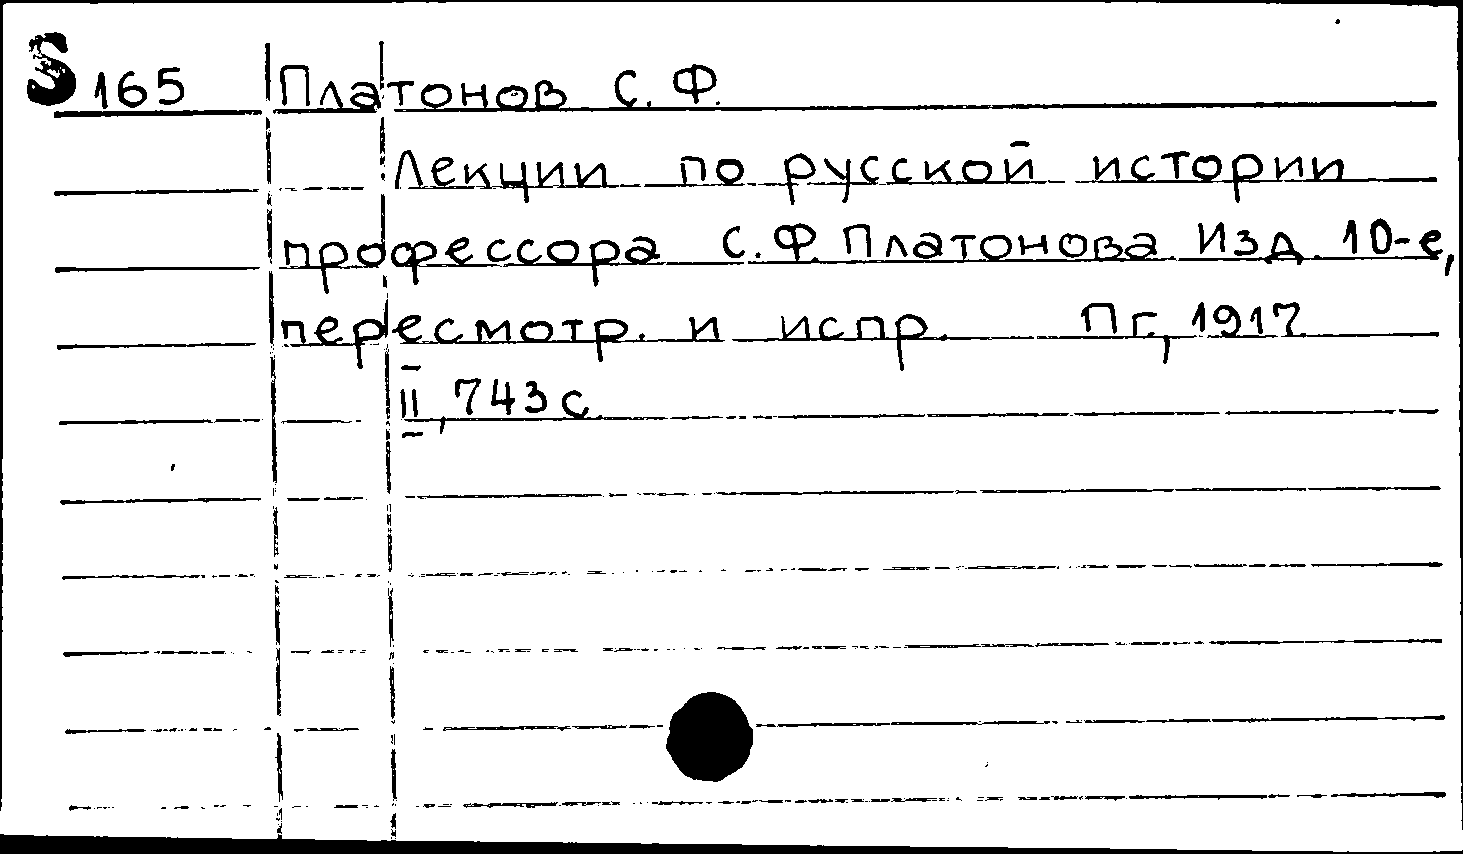 S 165 Платонов С. Ф.
Лекции по русской истории
профессора С. Ф. Платонова. Изд. 10-е,
пересмотр. и испр. Пг., 1917.
II, 743 с.